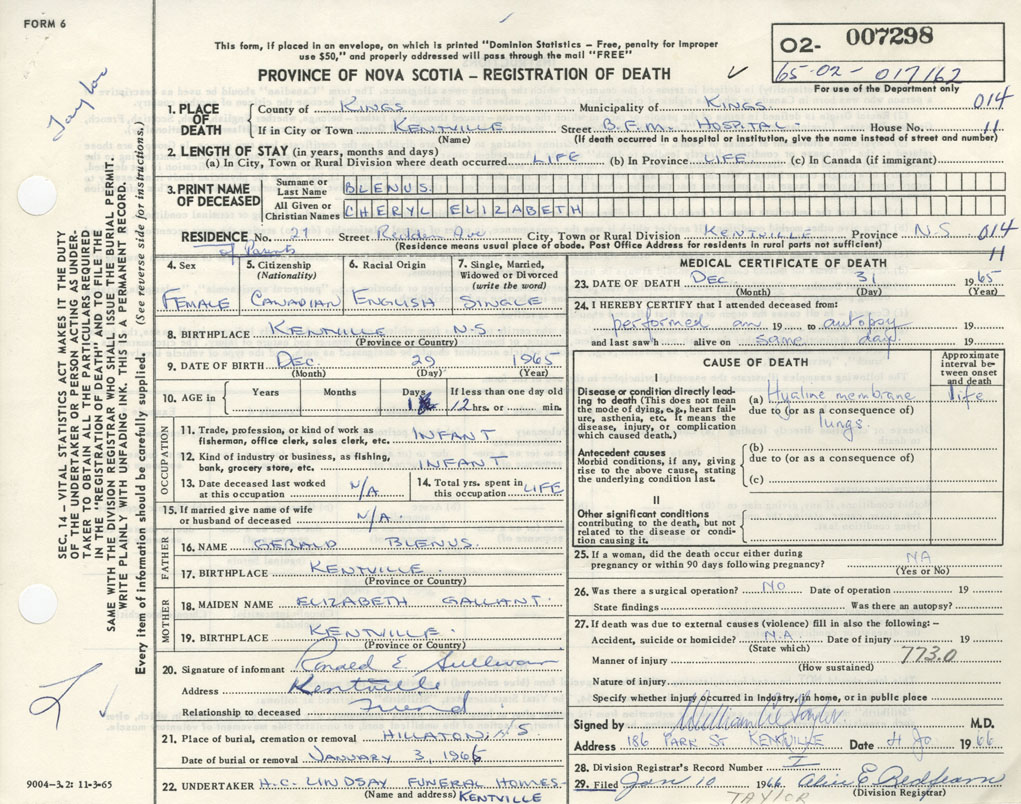 FORM 6
This form, if placed in an envelope, on which is printed "Dominion Statistics – Free, penalty for improper
use $50," and properly addressed will pass through the mail "FREE"
PROVINCE OF NOVA SCOTIA – REGISTRATION OF DEATH
02- 007298
65-02-017162
For use of the Department only
Taylor
1. PLACE OF DEATH
County of KINGS Municipality of KINGS 014
If in City or Town KENTVILLE Street B.F.M. HOSPITAL House No. 11
(Name) (If death occurred in a hospital or institution, give the name instead of street and number)
2. LENGTH OF STAY (in years, months and days)
(a) In City, Town or Rural Division where death occurred LIFE (b) In Province LIFE (c) In Canada (if immigrant)
3. PRINT NAME OF DECEASED
Surname or Last Name BLENUS
All Given or Christian Names CHERYL ELIZABETH
RESIDENCE No. 21 Street Redden Ave City, Town or Rural Division KENTVILLE Province N.S 014
of Parents (Residence means usual place of abode. Post Office Address for residents in rural parts not sufficient) 11
4. Sex 5. Citizenship (Nationality) 6. Racial Origin 7. Single, Married, Widowed or Divorced (write the word)
FEMALE CANADIAN ENGLISH SINGLE
8. BIRTHPLACE KENTVILLE N.S.
(Province or Country)
9. DATE OF BIRTH DEC. 29 1965
(Month) (Day) (Year)
10. AGE in Years Months Days If less than one day old
12 hrs. or min.
OCCUPATION
11. Trade, profession or kind of work as
fisherman, office clerk, sales clerk, etc. INFANT
12. Kind of industry or business, as fishing,
bank, grocery store, etc. INFANT
13. Date deceased last worked
at this occupation N/A
14. Total yrs. spent in
this occupation LIFE
15. If married give name of wife
or husband of deceased N/A.
FATHER
16. NAME GERALD BLENUS
17. BIRTHPLACE KENTVILLE
(Province or Country)
MOTHER
18. MAIDEN NAME ELIZABETH GALLANT.
19. BIRTHPLACE KENTVILLE.
(Province or Country)
20. Signature of informant Ronald E Sullivan
Address Kentville
Relationship to deceased Friend
21. Place of burial, cremation or removal HILLATON, NS
Date of burial or removal JANUARY 3, 1966
22. UNDERTAKER H.C. LINDSAY FUNERAL HOMES-
(Name and address) KENTVILLE
MEDICAL CERTIFICATE OF DEATH
23. DATE OF DEATH DEC. 31 1965
(Month) (Day) (Year)
24. I HEREBY CERTIFY that I attended deceased from:
performed an 19 to autopsy 19
and last saw h alive on same day 19
CAUSE OF DEATH
Approximate interval between onset and death
I
Disease or condition directly leading to death (This does not mean the mode of dying, e.g., heart failure, asthenia, etc. It means the disease, injury, or complication which caused death.)
(a) Hyaline membrane life
due to (or as a consequence of)
lungs.
Antecedent causes
Morbid conditions, if any, giving rise to the above cause, stating the underlying condition last.
(b)
due to (or as a consequence of)
(c)
II
Other significant conditions
contributing to the death, but not related to the disease or condition causing it.
25. If a woman, did the death occur either during
pregnancy or within 90 days following pregnancy? NA
(Yes or No)
26. Was there a surgical operation? NO Date of operation 19
State findings Was there an autopsy?
27. If death was due to external causes (violence) fill in also the following:–
Accident, suicide or homicide? N.A. Date of injury 19
(State which)
Manner of injury 773.0
(How sustained)
Nature of injury
Specify whether injury occurred in industry, in home, or in public place
Signed by M.D.
Address 186 PARK ST KENTVILLE Date 1966
28. Division Registrar's Record Number I
29. Filed Jan 10 1966 Alice E. Redfearn
TAYLOR (Division Registrar)
SEC. 14 – VITAL STATISTICS ACT MAKES IT THE DUTY
OF THE UNDERTAKER OR PERSON ACTING AS UNDER-
TAKER TO OBTAIN ALL THE PARTICULARS REQUIRED
IN THE "REGISTRATION OF DEATH" AND TO FILE THE
SAME WITH THE DIVISION REGISTRAR WHO SHALL ISSUE THE BURIAL PERMIT
WRITE PLAINLY WITH UNFADING INK. THIS IS A PERMANENT RECORD.
Every item of information should be carefully supplied. (See reverse side for instructions.)
9004-3.2: 11-3-65